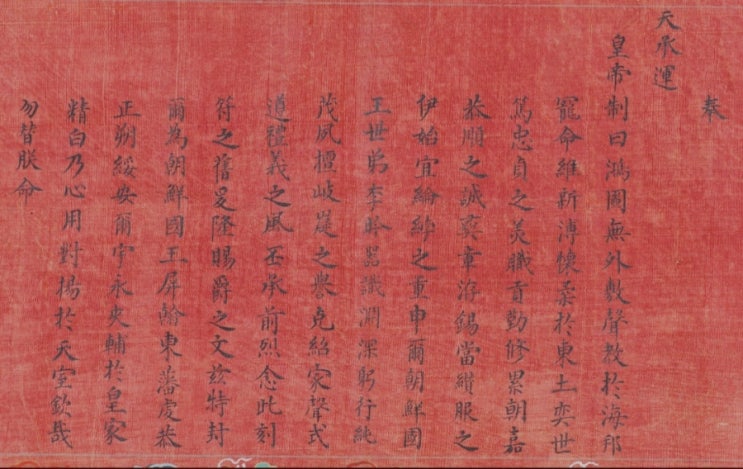 奉
天承運
皇帝制曰鴻圖無外敷聲教於海邦
寵命維新溥懷柔於東土奕世
篤忠貞之美職貢勤修累朝嘉
恭順之誠寘章洊錫當纘服之
伊始宜綸綍之重申爾朝鮮國
王世弟李昑器識淵深躬行純
茂夙擅岐嶷之譽克紹家聲式
遵禮義之風丕承前烈念此剖
符之舊爰隆賜爵之文茲特封
爾為朝鮮國王屏翰東藩虔恭
正朔綏安爾宇永夾輔於皇家
精白乃心用對揚於天室欽哉
勿替朕命